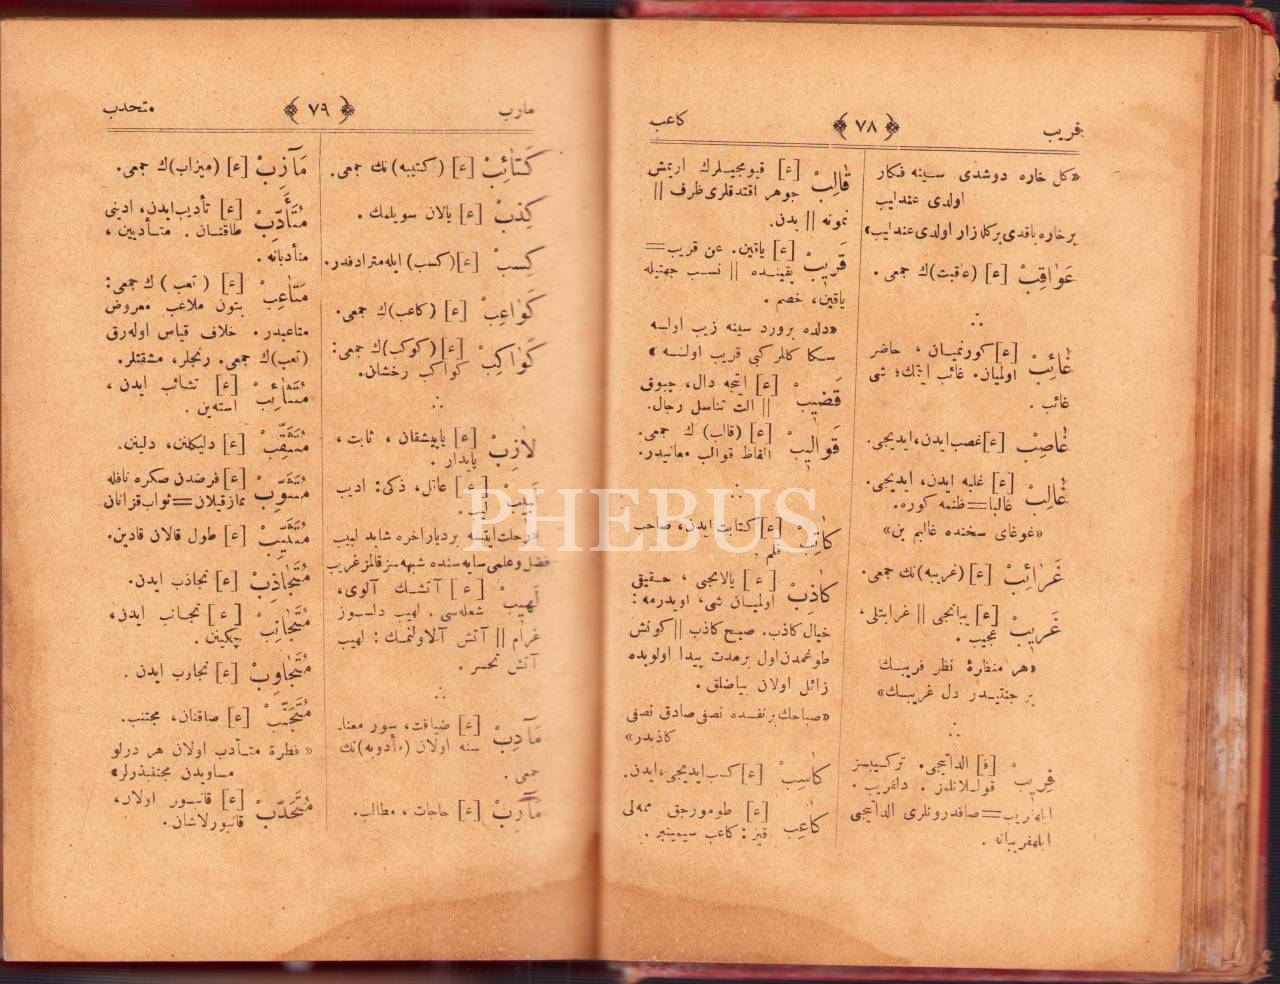 قريب
﴿ ٧٨ ﴾
كاعب
«كل خاره دوشدى سينه فكار
اولدى عندليب
برخاره باقدى بركلزار اولدى عندليب»
عَوَاقِبْ [ع] (عاقبت)ك جمعى.
∴
غَائِبْ [ع] كورنميان ، حاضر
اولميان. غائب ايتمك؛ شى
غائب .
غَاصِبْ [ع] غصب ايدن، ايديجى.
غَالِبْ [ع] غلبه ايدن، ايديجى.
غالبا = ظنمه كوره.
«غوغاى سخنده غالبم بن»
غَرَائِبْ [ع] (غريبه)نك جمعى.
غَرِيبْ [ع] يبانجى || غرابتلى،
عجيب .
«هر منظرهٔ نظر فريبك
بر جنتيدر دل غريبك»
∴
فِرِيبْ [ف] الداتيجى. تركيبسز
قوللانلمز . دلفريب .
ابلهفريب = صافدرونلرى الداتيجى
ابلهفريبانه .
قَالِبْ [ع] قيومجيلرك اريتمش
جوهر اقتدقلرى ظرف ||
نمونه || بدن.
قَرِيبْ [ع] ياقين. عن قريب =
يقينده || نسب جهتيله
ياقين، خصم .
«دلده برورد سينه زيب اولسه
سكا كلر كبى قريب اولسه»
قَضِيبْ [ع] اينجه دال، چبوق
|| آلت تناسل رجال.
قَوَالِيبْ [ع] (قالب) ك جمعى.
الفاظ قوالب معانيدر.
∴
كَاتِبْ [ع] كتابت ايدن، صاحب
قلم .
كَاذِبْ [ع] يالانجى ، حقيقى
اولميان شى، اويدرمه :
خيال كاذب. صبح كاذب || كونش
طوغمدن اول برمدت پيدا اولوبده
زائل اولان بياضلق .
«صباحك برنفسده نصفى صادق نصفى
كاذبدر»
كَاسِبْ [ع] كسب ايديجى، ايدن.
كَاعِبْ [ع] طومورجق ممه لى
قيز : كاعب سيمينبر .
مأرب
﴿ ٧٩ ﴾
متحدب
كَتَائِبْ [ع] (كتيبه) نك جمعى.
كِذْبْ [ع] يالان سويلمك .
كَسْبْ [ع] (كسب) ايله مترادفدر.
كَوَاعِبْ [ع] (كاعب)ك جمعى.
كَوَاكِبْ [ع] (كوكب)ك جمعى:
كواكب رخشان.
∴
لَازِبْ [ع] ياپيشقان ، ثابت ،
پايدار .
لَبِيبْ [ع] عاقل، ذكى: اديب
لبيب.
«رحلت ايتسه برديار آخره شايد لبيب
فضل وعلمى سايه سنده شبهه سز قالمز غريب
لَهِيبْ [ع] آتشك آلوى،
شعله سى . لهيب دلسوز
غرام || آتش آلاولنمك : لهيب
آتش تحسر .
∴
مَآدِبْ [ع] ضيافت، سور معنا-
سنه اولان (مأدوبه)نك
جمعى .
مَآرِبْ [ع] حاجات ، مطالب.
مَآزِبْ [ع] (ميزاب)ك جمعى.
مُتَأَدِّبْ [ع] تأديب ايدن، ادبنى
طاقنان . متأدبين ،
متأدبانه .
مَتَاعِبْ [ع] (تعب) ك جمعى:
بتون ملاعب معروض
متاعبدر . خلاف قياس اوله رق
(تعب)ك جمعى. رنجلر، مشقتلر.
مُتَثَائِبْ [ع] تثائب ايدن ،
اسنه ين .
مُتَثَقِّبْ [ع] دليكلنن، دلينن.
مُتَثَوِّبْ [ع] فرضدن صكره نافله
نماز قيلان = ثواب قزانان
مُتَثَيِّبْ [ع] طول قالان قادين.
مُتَجَاذِبْ [ع] تجاذب ايدن.
مُتَجَانِبْ [ع] تجانب ايدن ،
چكينن .
مُتَجَاوِبْ [ع] تجاوب ايدن .
مُتَجَنِّبْ [ع] صاقنان، مجتنب.
«فطرة متأدب اولان هر درلو
مساويدن مجتنبدرلر»
مُتَحَدِّبْ [ع] قانبور اولان،
قانبورلاشان.
PHEBUS